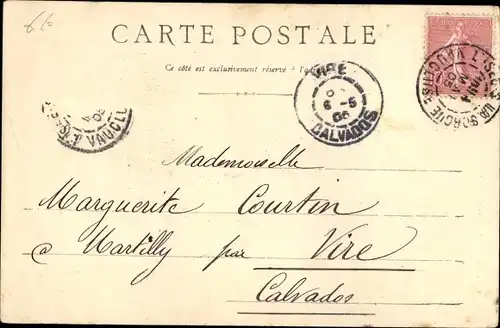 6f
CARTE POSTALE
Ce côté est exclusivement réservé à l'a
VIRE
6-5
CALVADOS
VAUCLUSE
VAUCL
Mademoiselle
Marguerite Courtin
à Martilly par Vire
Calvados